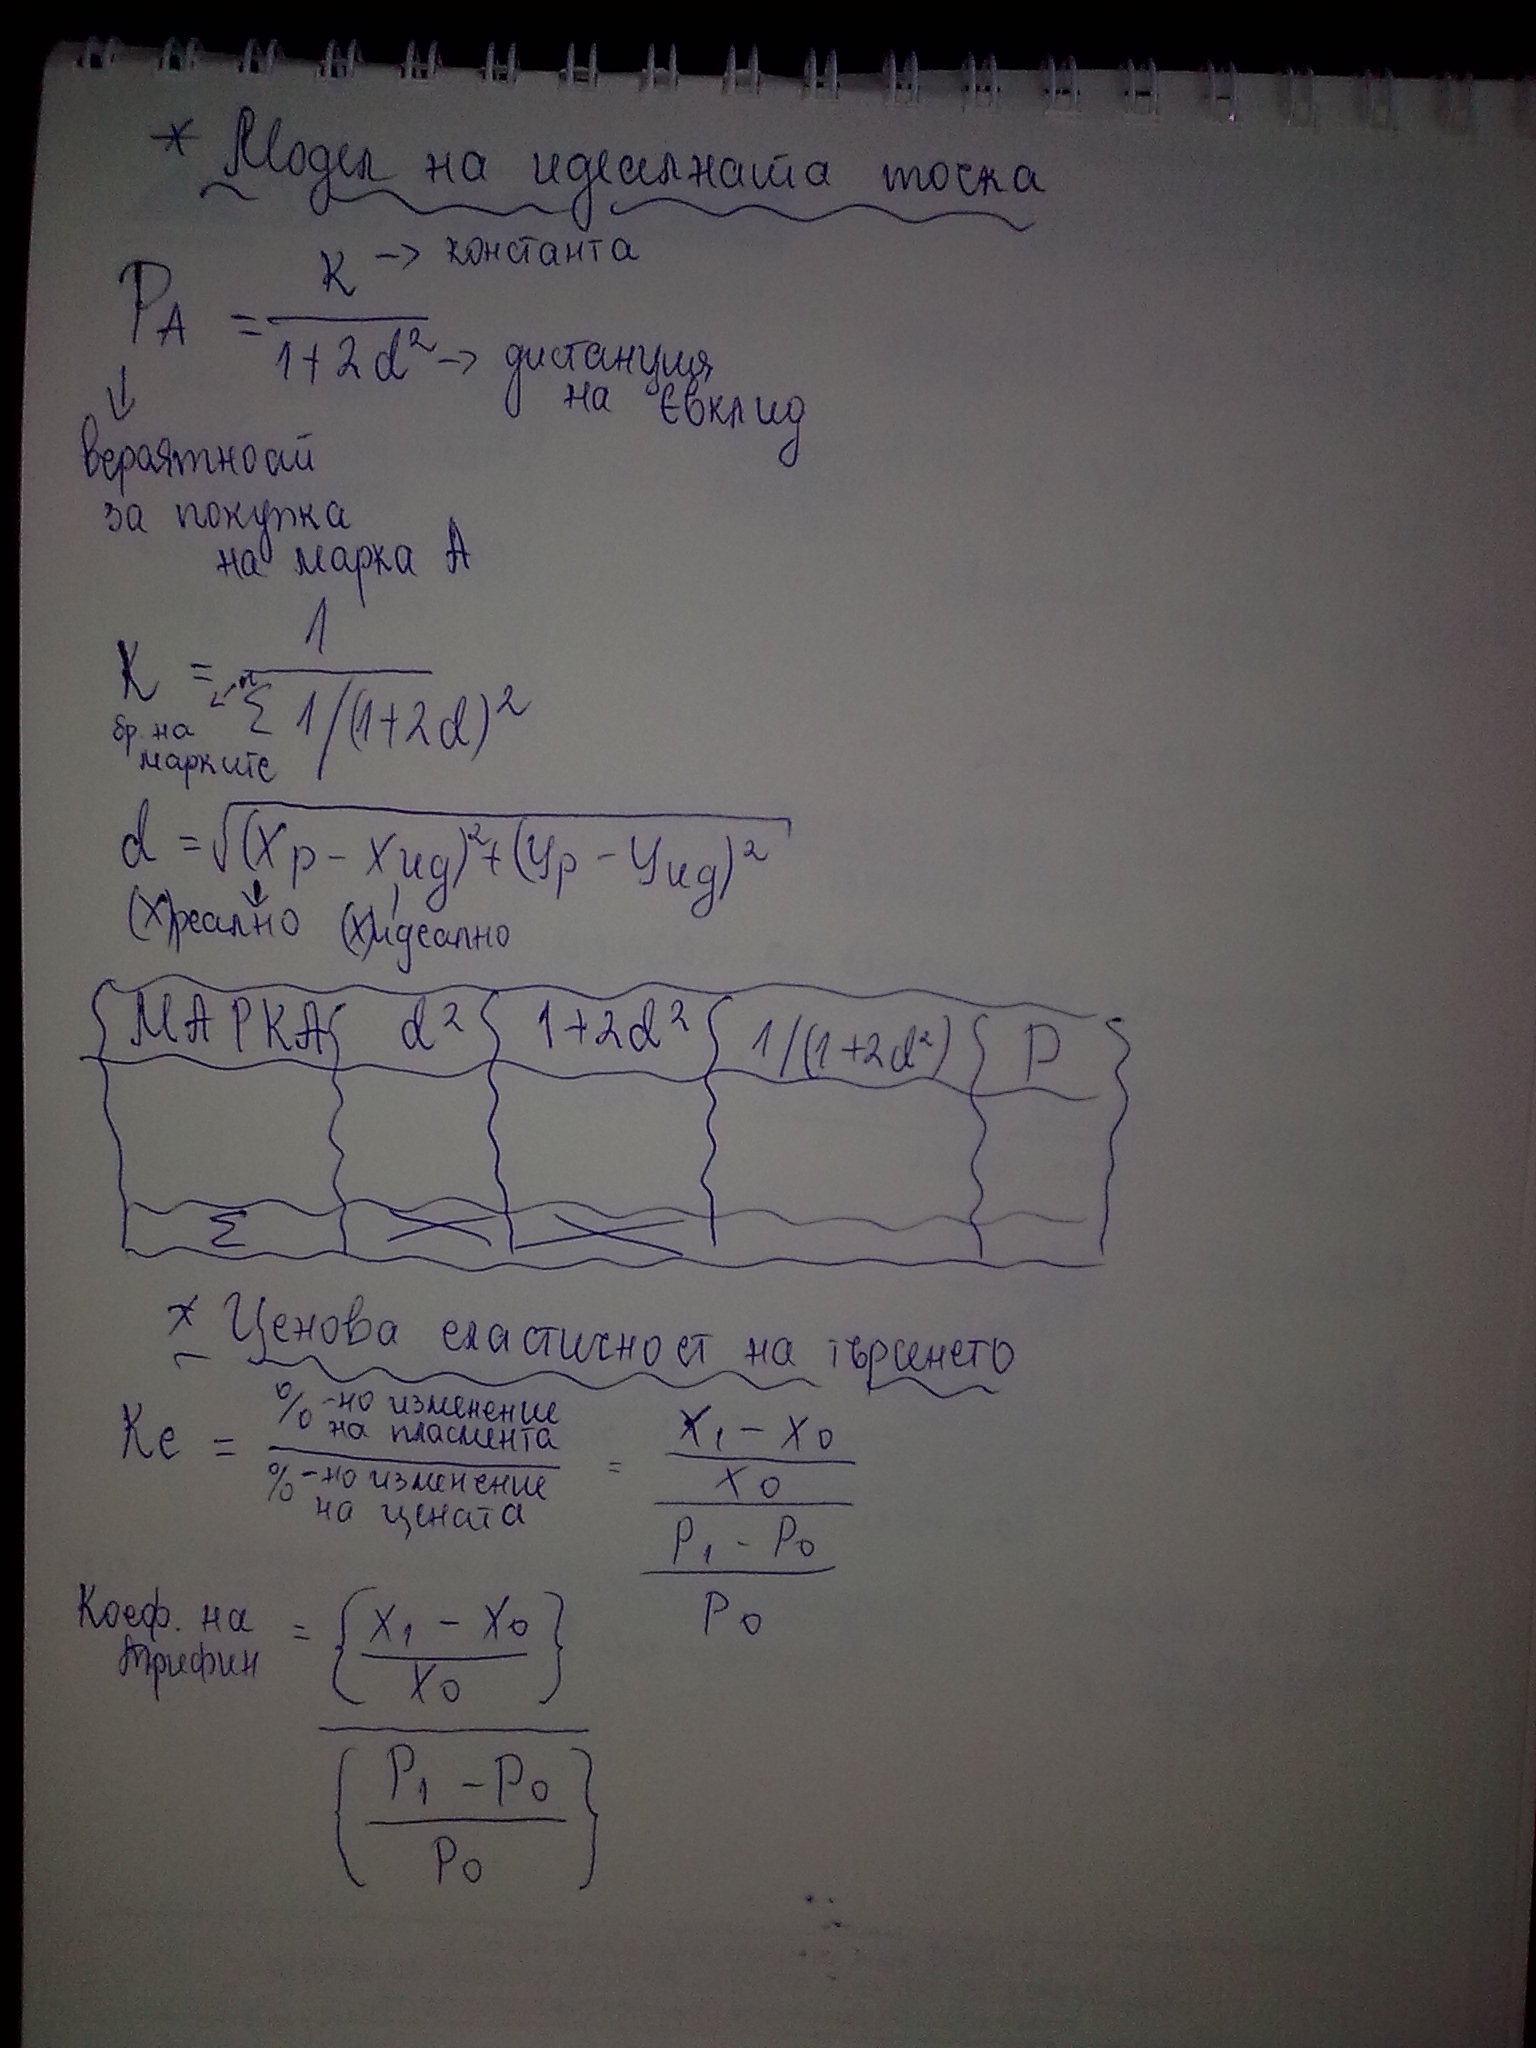 * Модел на идеалната точка
P_A = K / (1+2d²)
K → константа
d² → дистанция
на Евклид
↓
вероятност
за покупка
на марка А
K = 1 / (Σⁿ 1/(1+2d)²)
бр. на
марките
d = √((Xр - Xид)² + (Yр - Yид)²)
(X)реално (X)идеално
МАРКА d² 1+2d² 1/(1+2d²) P
Σ
* Ценова еластичност на търсенето
Ke = (%-но изменение на пласмента) / (%-но изменение на цената) = ((X₁ - X₀) / X₀) / ((P₁ - P₀) / P₀)
Коеф. на
Трифин = {(X₁ - X₀) / X₀} / {(P₁ - P₀) / P₀}